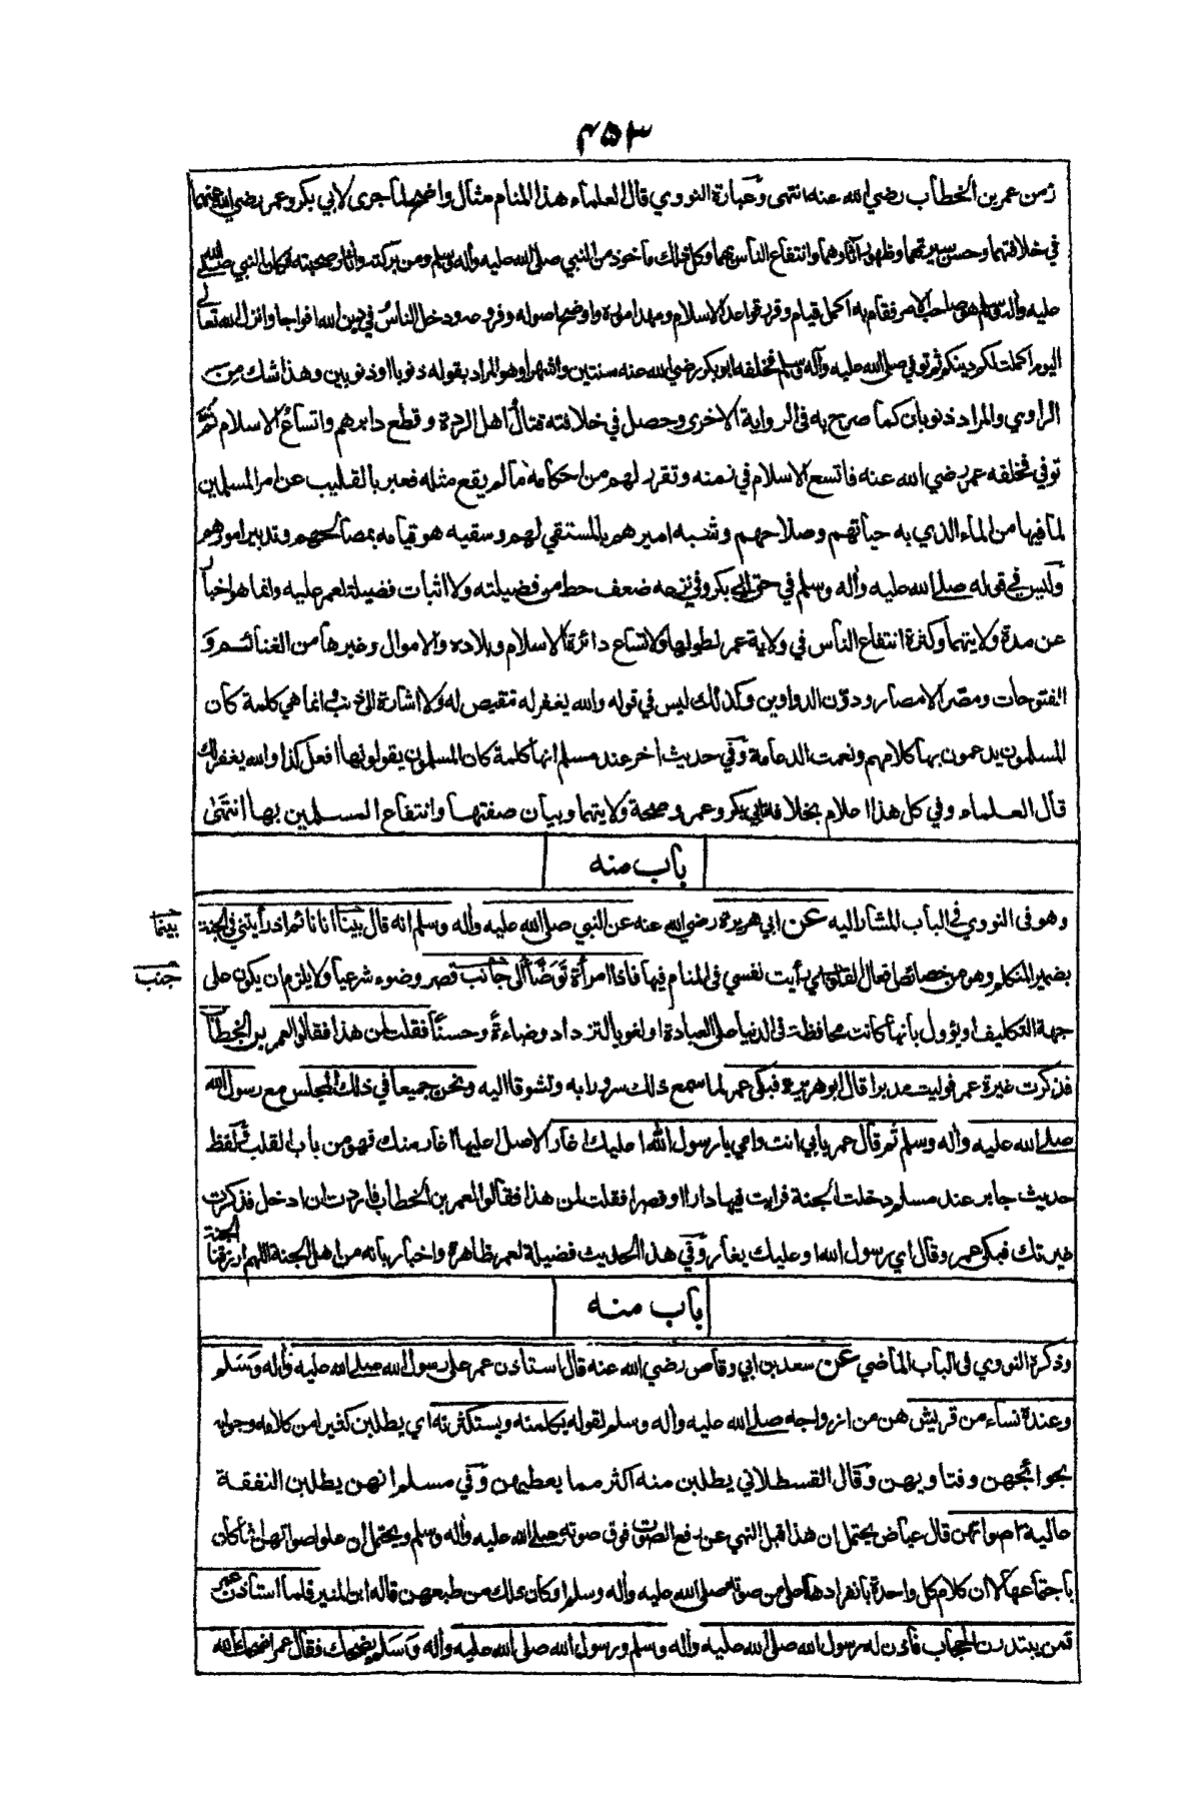 ۴۵۳
زمن عمر بن الخطاب رضي الله عنه انتهى وعبارة النووي قال العلماء هذا المنام مثال واضح لما جرى لابي بكر وعمر رضي الله عنهما
في خلافتهما وحسن سيرتهما وظهور آثارهما وانتفاع الناس بهما وكل ذلك مأخوذ من النبي صلى الله عليه وأله وسلم ومن بركته وأثار صحبته فكان النبي صلى الله
عليه وأله وسلم هو صاحب الامر فقام به اكمل قيام وقرر قواعد الاسلام ومهد اموره واوضح اصوله وفروعه ودخل الناس في دين الله افواجا وانزل الله تعالى
اليوم اكملت لكم دينكم ثم توفي صلى الله عليه وأله وسلم فخلفه ابو بكر رضي الله عنه سنتين واشهرا وهو المراد بقوله ذنوبا او ذنوبين وهذا شك من
الراوي والمراد ذنوبان كما صرح به فى الرواية الاخرى وحصل في خلافته قتال اهل الردة وقطع دابرهم واتساع الاسلام ثم
توفي فخلفه عمر رضي الله عنه فاتسع الاسلام في زمنه وتقرر لهم من احكامه مالم يقع مثله فعبر بالقليب عن امر المسلمين
لما فيها من الماء الذي به حياتهم وصلاحهم وشبه اميرهم بالمستقي لهم وسقيه هو قيامه بمصالحهم وتدبير امورهم
وليس في قوله صلى الله عليه وأله وسلم في حق ابي بكر وفي نزعه ضعف حط من فضيلته ولا اثبات فضيلة لعمر عليه وانما هو اخبار
عن مدة ولايتهما وكثرة انتفاع الناس في ولاية عمر لطولها ولاتساع دائرة الاسلام وبلاده والاموال وغيرها من الغنائم و
الفتوحات ومصر الامصار ودون الدواوين وكذلك ليس في قوله والله يغفر له تنقيص له ولا اشارة الى ذنب انما هي كلمة كان
المسلمون يدعمون بها كلامهم ونعمت الدعامة وفي حديث أخر عند مسلم انها كلمة كان المسلمون يقولونها افعل كذا والله يغفر لك
قال العلماء وفي كل هذا اعلام بخلافة ابي بكر وعمر وصحة ولايتهما وبيان صفتها وانتفاع المسلمين بها انتهى
باب منه
وهو فى النووي في الباب المشار اليه عن ابي هريرة رضي الله عنه عن النبي صلى الله عليه وأله وسلم انه قال بينا انا نائم اذ رأيتني في الجنة
بينما
بضمير المتكلم وهو من خصائص افعال القلوب اي رأيت نفسي فى المنام فيها فاذا امرأة توضأ الى جانب قصر وضوء شرعيا ولا يلزم ان يكون على
جنب
جهة التكليف او يؤول بأنها كانت محافظة فى الدنيا على العبادة او لغويا لتزداد وضاءة وحسنا فقلت لمن هذا فقالوا لعمر بن الخطاب
فذكرت غيرة عمر فوليت مدبرا قال ابو هريرة فبكى عمر لما سمع ذلك سرورا به وتشوقا اليه ونحن جميعا في ذلك المجلس مع رسول الله
صلى الله عليه وأله وسلم ثم قال عمر بابي انت وامي يا رسول الله اعليك اغار الاصل اعليها اغار منك فهو من باب القلب ولفظ
حديث جابر عند مسلم دخلت الجنة فرايت فيها دارا او قصرا فقلت لمن هذا فقالوا لعمر بن الخطاب فاردت ان ادخل فذكرت
غيرتك فبكى عمر وقال اي رسول الله او عليك يغار وفي هذا الحديث فضيلة لعمر ظاهرة واخبار بانه من اهل الجنة اللهم ارزقنا الجنة
باب منه
وذكره النووي فى الباب الماضي عن سعد بن ابي وقاص رضي الله عنه قال استاذن عمر على رسول الله صلى الله عليه وأله وسلم
وعنده نساء من قريش هن من ازواجه صلى الله عليه وأله وسلم لقوله يكلمنه ويستكثرنه اي يطلبن كثيرا من كلامه وجوابه
بحوائجهن وفتاويهن وقال القسطلاني يطلبن منه اكثر مما يعطيهن وفي مسلم انهن يطلبن النفقة
عالية اصواتهن قال عياض يحتمل ان هذا قبل النهي عن رفع الصوت فوق صوته صلى الله عليه وأله وسلم ويحتمل ان علو اصواتهن انما كان
باجتماعها لا ان كلام كل واحدة بانفرادها اعلى من صوته صلى الله عليه وأله وسلم او كان ذلك من طبعهن قاله ابن المنير فلما استاذن عمر
قمن يبتدرن الحجاب فأذن له رسول الله صلى الله عليه وأله وسلم ورسول الله صلى الله عليه وأله وسلم يضحك فقال عمر اضحك الله